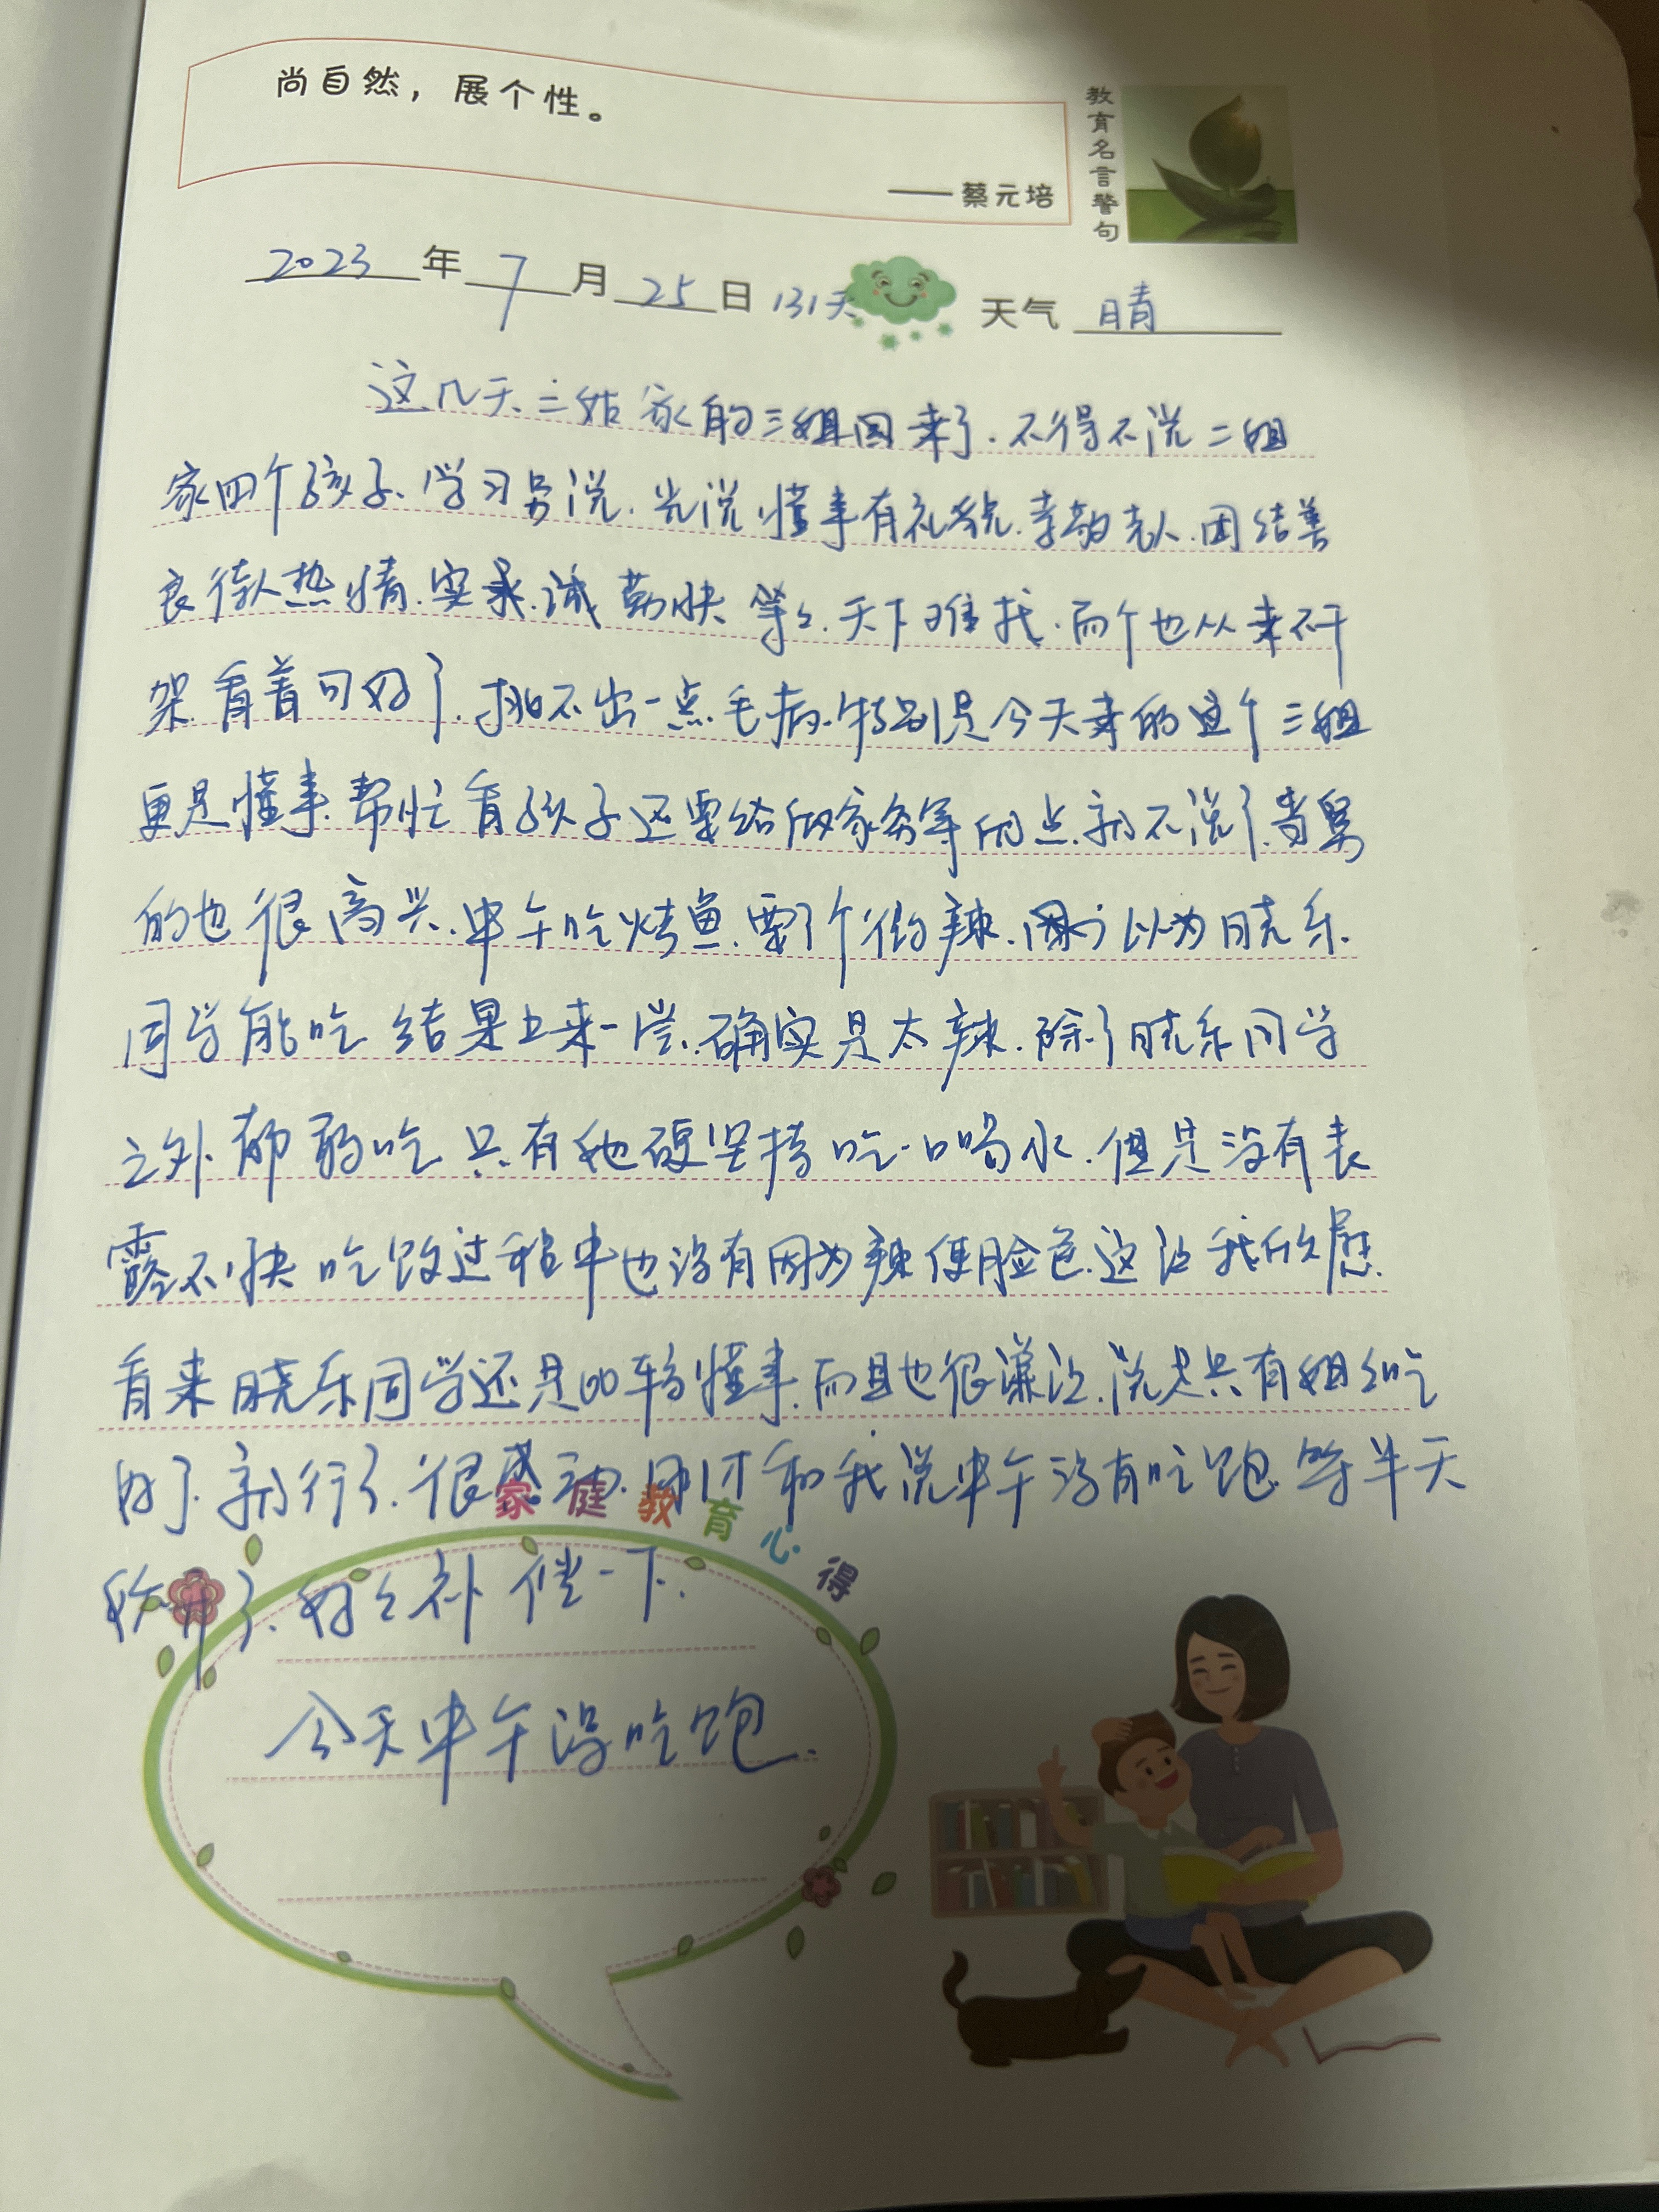 尚自然，展个性。
——蔡元培
教育名言警句
2023年7月25日 131天 天气 晴
这几天二姑家的三姐回来了.不得不说二姐
家四个孩子.学习另说.光说懂事有礼貌.孝敬老人.团结善
良待人热情.实承.诚 勤快 等々.天下难找.而个也从来不干
架.看着可好了.挑不出一点毛病.特别是今天来的这个三姐
更是懂事.帮忙看孩子还要给做家务等的点.就不说了.当舅
的也很高兴.中午吃烤鱼.要了个微辣.以为晓乐
同学能吃 结果上来一尝.确实是太辣.除了晓乐同学
之外都敢吃 只有他硬坚持吃一口喝水.但是没有表
露不快 吃饭过程中也没有因为辣使脸色.这让我欣慰.
看来晓乐同学还是比较懂事.而且也很潇洒.说只有姐々吃
好了.就行了.很感动.刚才和我说中午没有吃饱.等半天
了.好々补偿一下.
家庭教育心得
今天中午没吃饱.